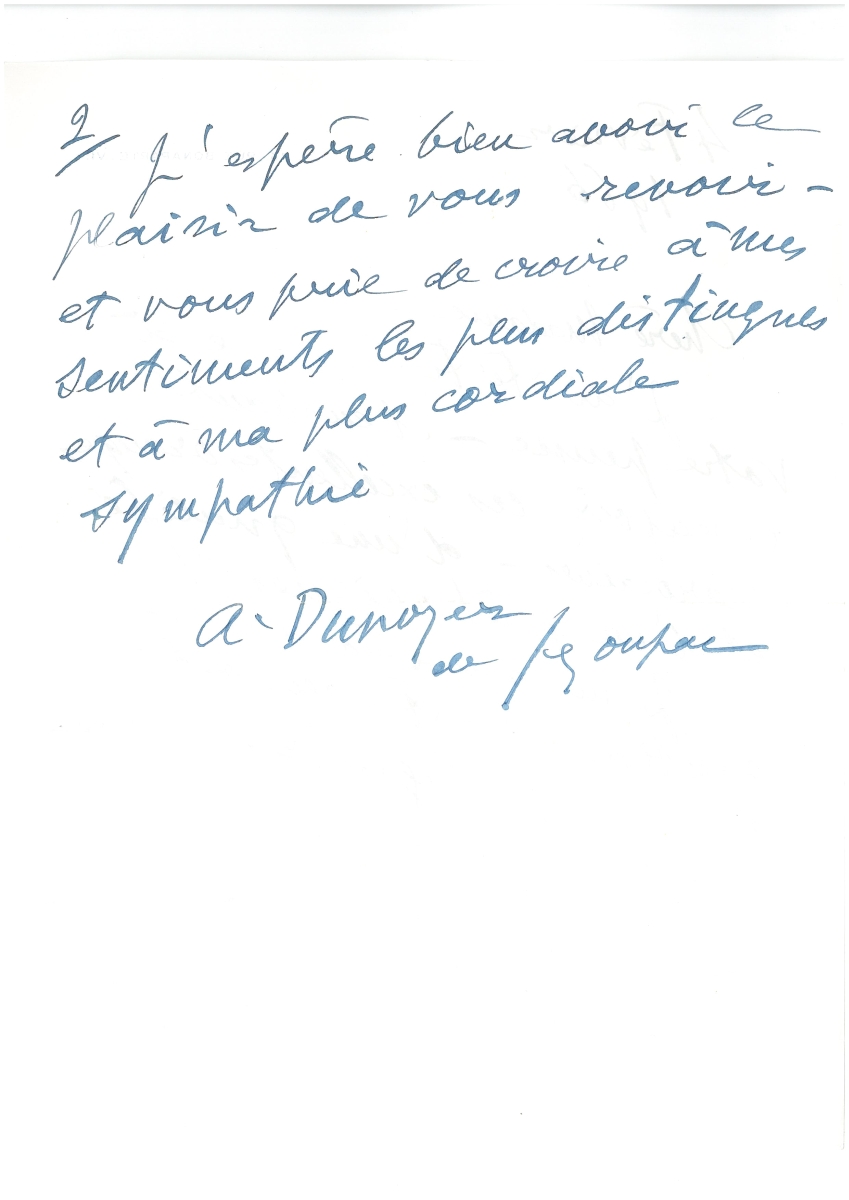 2/ J'espère bien avoir le
plaisir de vous revoir -
et vous prie de croire à mes
sentiments les plus distingués
et à ma plus cordiale
sympathie
A. Dunoyer
de Segonzac